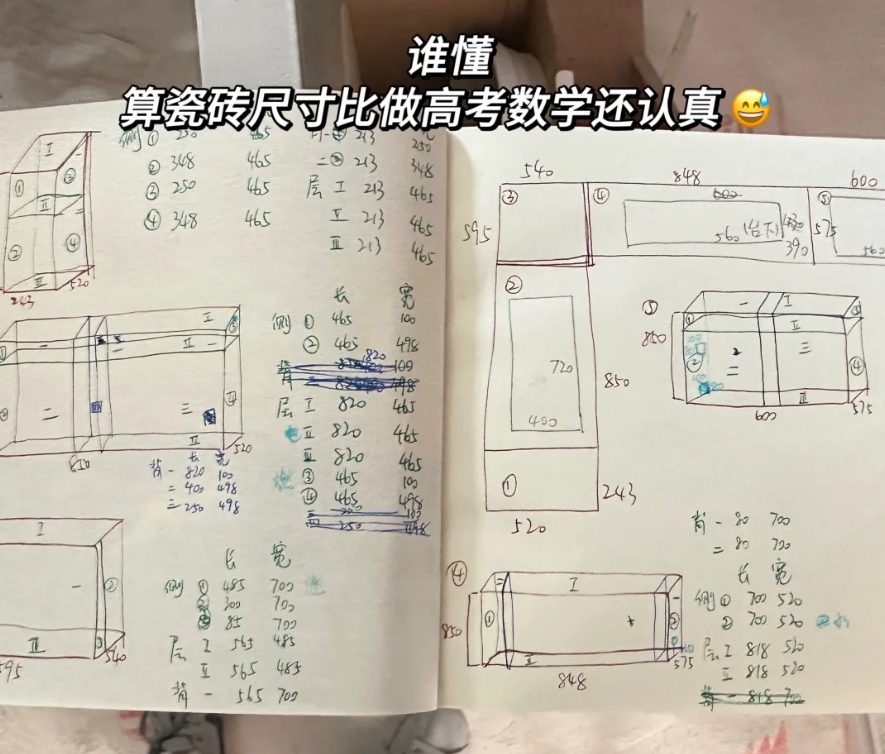 谁懂
算瓷砖尺寸比做高考数学还认真😅
侧 ① 250 465
② 348 465
③ 250 465
④ 348 465
213 250
213 348
层 I 213 465
II 213 465
III 213 465
I
II
III
①
②
②
④
243
520
长 宽
侧 ① 465 100
② 465 498
层 I 820 465
II 820 465
III 820 465
③ 465 100
④ 465 498
I
II
一
二
三
④
II
810
520
长 宽
背 一 820 100
二 400 498
三 250 498
I
一
②
III
③
595
540
长 宽
侧 ① 485 700
② 300 700
③ 85 700
层 I 565 485
II 565 485
背 一 565 700
540
848
600
③
④
600
⑤
595
560
台下
390
575
560
②
720
400
850
①
243
520
⑤
850
一
I
①
II
③
②
2
二
三
④
III
600
575
背 一 80 700
二 80 700
长 宽
侧 ① 700 520
② 700 520
层 I 818 520
II 818 520
背 一 818 700
④
850
二
I
一
①
②
II
848
575